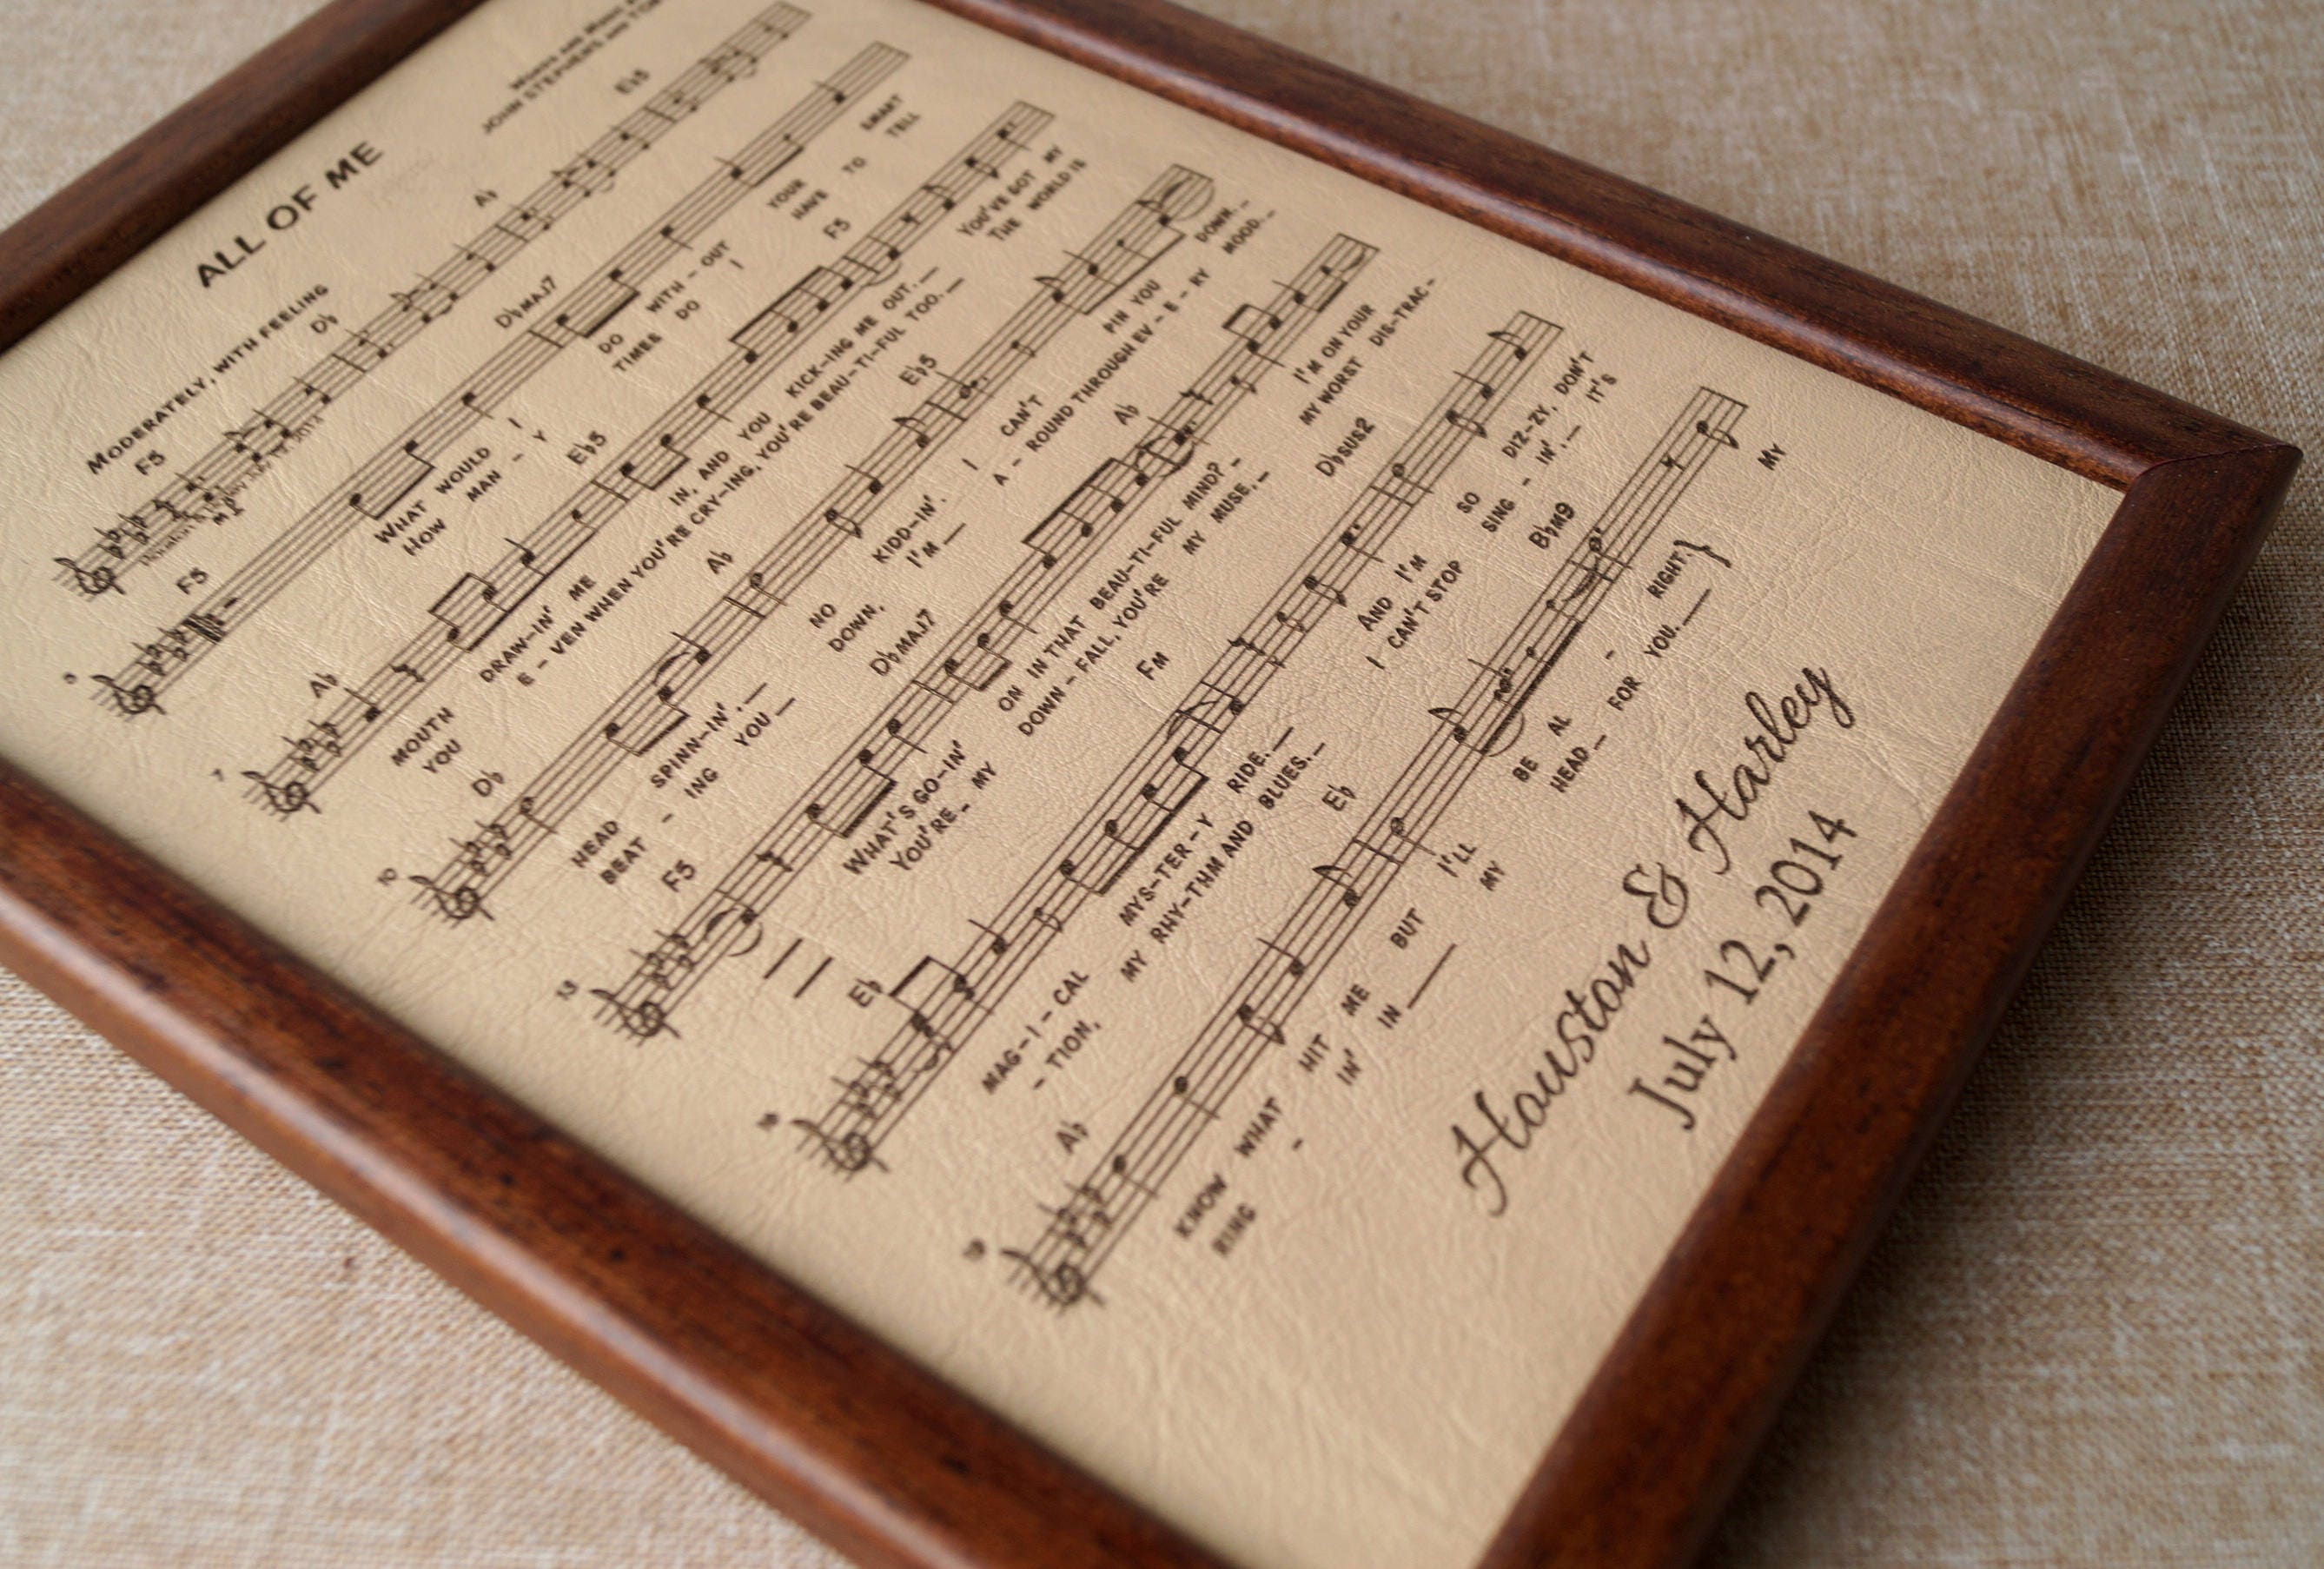 ALL OF ME
WORDS AND MUSIC
JOHN STEPHENS AND
MODERATELY, WITH FEELING
F5 D♭ A♭ E♭5
F5 D♭MAJ7
WHAT WOULD I DO WITH-OUT YOUR SMART
HOW MAN - Y TIMES DO I HAVE TO TELL
7
A♭ E♭5 F5
MOUTH DRAW-IN' ME IN, AND YOU KICK-ING ME OUT.__ YOU'VE GOT MY
YOU E - VEN WHEN YOU'RE CRY-ING, YOU'RE BEAU-TI-FUL TOO.__ THE WORLD IS
10
D♭ A♭ E♭5
HEAD SPINN-IN'.__ NO KIDD-IN'. I CAN'T PIN YOU DOWN.__
BEAT - ING YOU__ DOWN, I'M__ A - ROUND THROUGH EV - E - RY MOOD.__
13
F5 D♭MAJ7 A♭
WHAT'S GO-IN' ON IN THAT BEAU-TI-FUL MIND?__ I'M ON YOUR
YOU'RE__ MY DOWN - FALL, YOU'RE MY MUSE,__ MY WORST DIS-TRAC-
16
E♭ FM D♭SUS2
MAG-I-CAL MYS-TER-Y RIDE.__ AND I'M SO DIZ-ZY, DON'T
- TION, MY RHY-THM AND BLUES.__ I CAN'T STOP SING - IN'.__ IT'S
19
A♭ E♭ B♭M9
KNOW WHAT HIT ME BUT I'LL BE AL - RIGHT. MY
RING - IN' IN__ MY HEAD__ FOR YOU.__
Houston & Harley
July 12, 2014